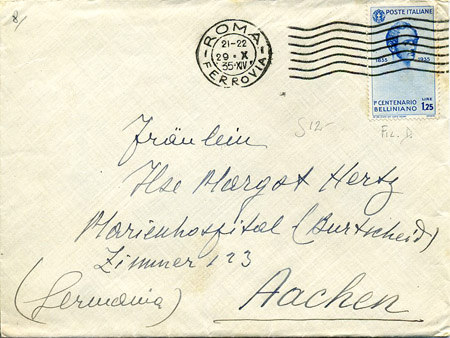 8/
ROMA
FERROVIA
21-22
29·X
35·XIV
POSTE ITALIANE
1835 1935
Iº CENTENARIO
BELLINIANO
LIRE
1,25
$12-
Fil. D.
Fräulein
Ilse Margot Hertz
Marienhospital (Burtscheid)
Zimmer 123
(Germania) Aachen